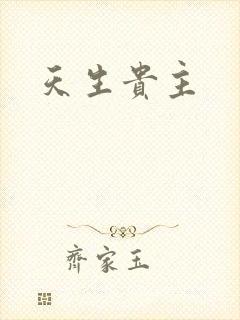 天生貴主
齊家玉